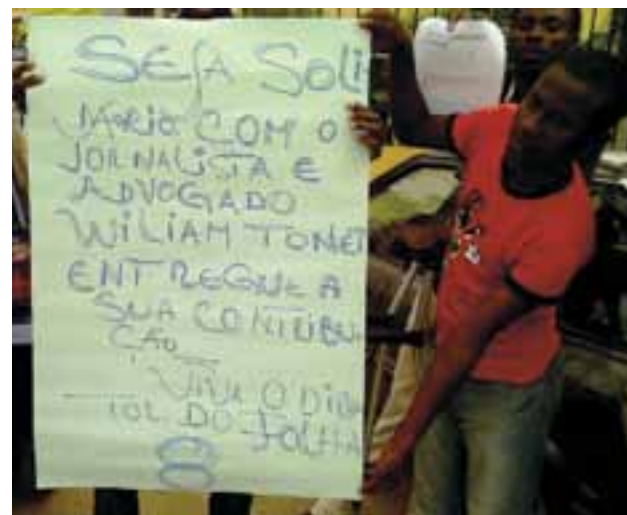 SEJA SOLI
DARIO COM O
JORNALISTA E
ADVOGADO
WILIAM TONET
ENTREGUE A
SUA CONTRIBU
ÇÃO
VIVA O DIRE
TOR DO FOLHA
8